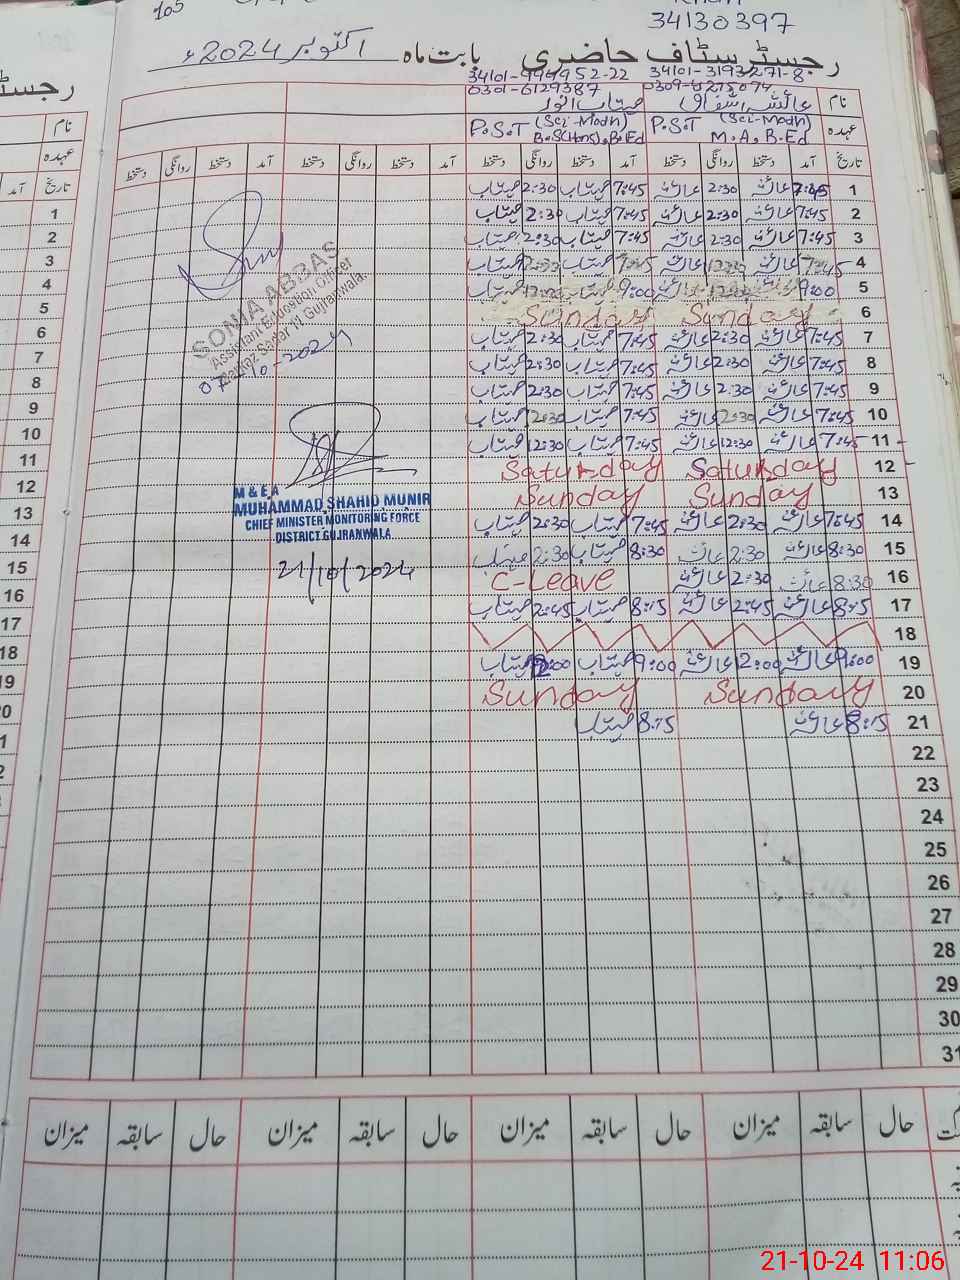 105
34130397
رجسٹر سٹاف حاضری بابت ماہ اکتوبر 2024ء
34101-3193271-8
نام عائشہ اشفاق مہتاب انور
0301-6129387
عہدہ P.S.T (Sci-Modh) P.S.T (Sci-Modh)
M.A, B.Ed B.S(Hons), B.Ed
تاریخ آمد دستخط روانگی دستخط آمد دستخط روانگی دستخط آمد دستخط روانگی دستخط آمد دستخط روانگی دستخط
1 7:45 عائشہ 2:30 عائشہ 7:45 مہتاب 2:30 مہتاب
2 7:45 عائشہ 2:30 عائشہ 7:45 مہتاب 2:30 مہتاب
3 7:45 عائشہ 2:30 عائشہ 7:45 مہتاب 2:30 مہتاب
4 7:45 عائشہ عائشہ 7:45 مہتاب مہتاب
5 9:00 عائشہ 9:00 مہتاب مہتاب
6 Sunday Sunday
7 7:45 عائشہ 2:30 عائشہ 7:45 مہتاب 2:30 مہتاب
8 7:45 عائشہ 2:30 عائشہ 7:45 مہتاب 2:30 مہتاب
9 7:45 عائشہ 2:30 عائشہ 7:45 مہتاب 2:30 مہتاب
10 7:45 عائشہ 2:30 عائشہ 7:45 مہتاب 2:30 مہتاب
11 7:45 عائشہ 12:30 عائشہ 7:45 مہتاب 12:30 مہتاب
12 Saturday Saturday
13 Sunday Sunday
14 7:45 عائشہ 2:30 عائشہ 7:45 مہتاب 2:30 مہتاب
15 8:30 عائشہ 2:30 عائشہ 8:30 مہتاب 2:30 مہتاب
16 8:30 عائشہ 2:30 عائشہ C-Leave
17 8:15 عائشہ 2:45 عائشہ 8:15 مہتاب 2:45 مہتاب
18
19 9:00 عائشہ 12:00 عائشہ 9:00 مہتاب 12:00 مہتاب
20 Sunday Sunday
21 8:15 عائشہ 8:15 مہتاب
22
23
24
25
26
27
28
29
30
31
SONIA ABBAS
Assistant Education Officer
Markaz Sadar 11 Gujranwala.
07-10-2024
M & E A
MUHAMMAD SHAHID MUNIR
CHIEF MINISTER MONITORING FORCE
DISTRICT GUJRANWALA
21/10/2024
حال سابقہ میزان حال سابقہ میزان حال سابقہ میزان حال سابقہ میزان
رجسٹ
نام
عہدہ
تاریخ آمد
1
2
3
4
5
6
7
8
9
10
11
12
13
14
15
16
17
18
19
20
21-10-24 11:06